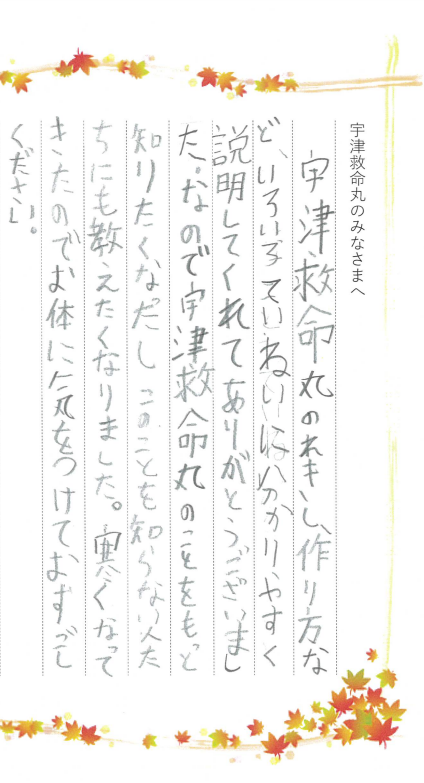 宇津救命丸のみなさまへ
宇津救命丸のれきし、作り方な
ど、いろいろていねいに分かりやすく
説明してくれてありがとうございまし
た。なので宇津救命丸のことをもっと
知りたくなったし このことを知らない人た
ちにも教えたくなりました。寒くなって
きたのでお体に気をつけておすごし
ください。